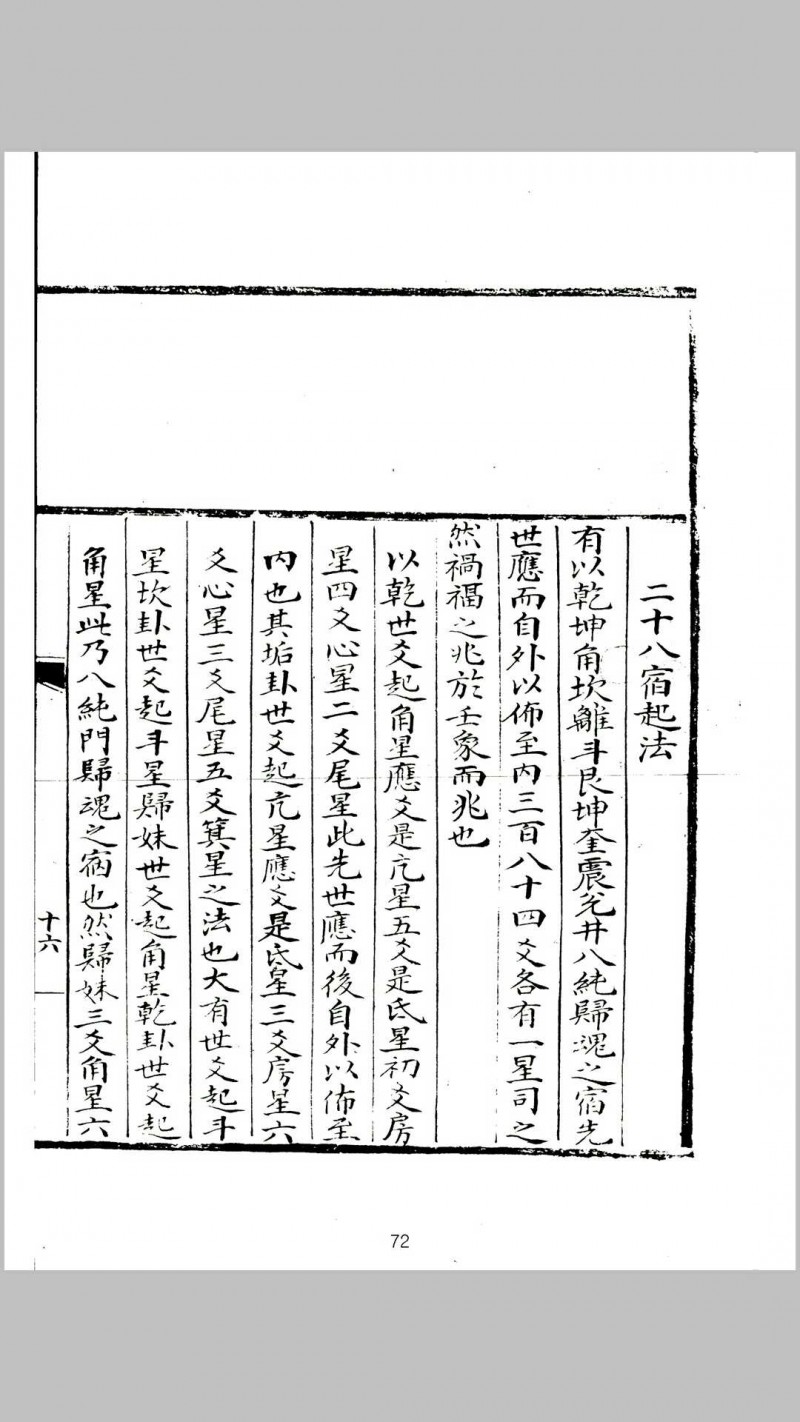 二十八宿起法
有以乾坤角坎離斗艮坤奎震兊井八純歸魂之宿先
世應而自外以佈至内三百八十四爻各有一星司之
然禍福之兆於壬象而兆也
以乾世爻起角星應爻是亢星五爻是氐星初爻房
星四爻心星二爻尾星此先世應而後自外以佈至
内也其垢卦世爻起亢星應爻是氐星三爻房星六
爻心星三爻尾星五爻箕星之法也大有世爻起斗
星坎卦世爻起斗星歸妹世爻起角星乾卦世爻起
角星此乃八純門歸魂之病也然歸妹三爻角星六
十六
72